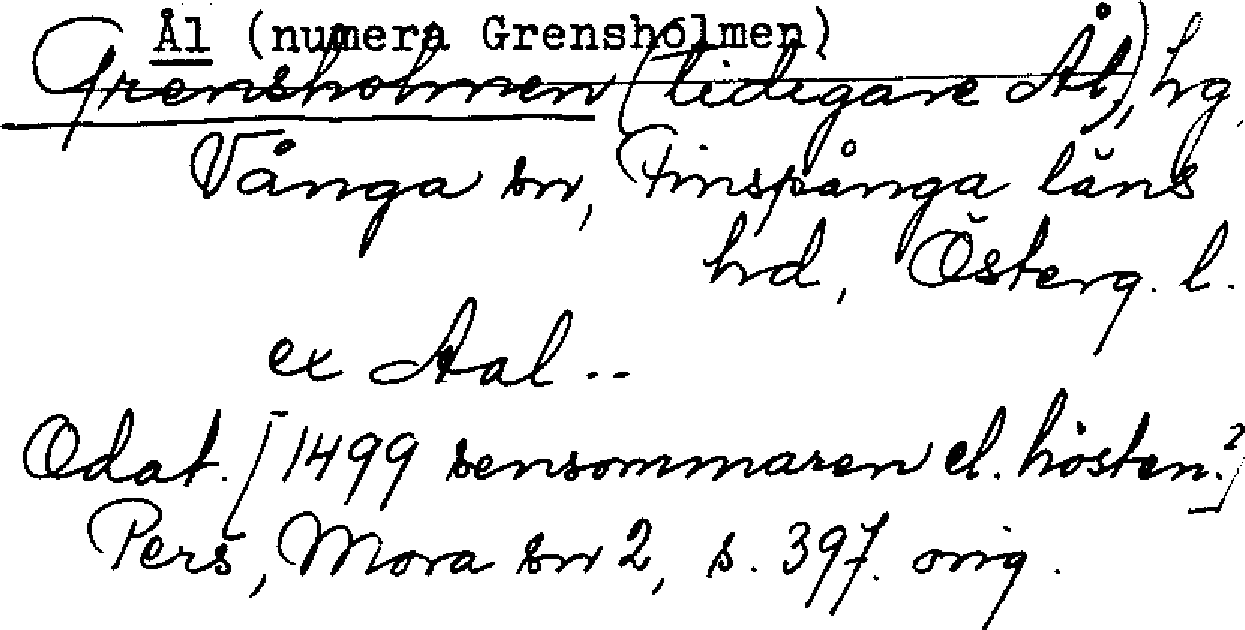 Ål (numera Grensholmen)
Grensholmen (tidigare Ål), hg,
Vånga sn, Finspånga läns
hd, Österg. l.
ex Aal..
Odat. [1499 sensommaren el. hösten?]
Pers, Mora sn 2, s. 397. orig.